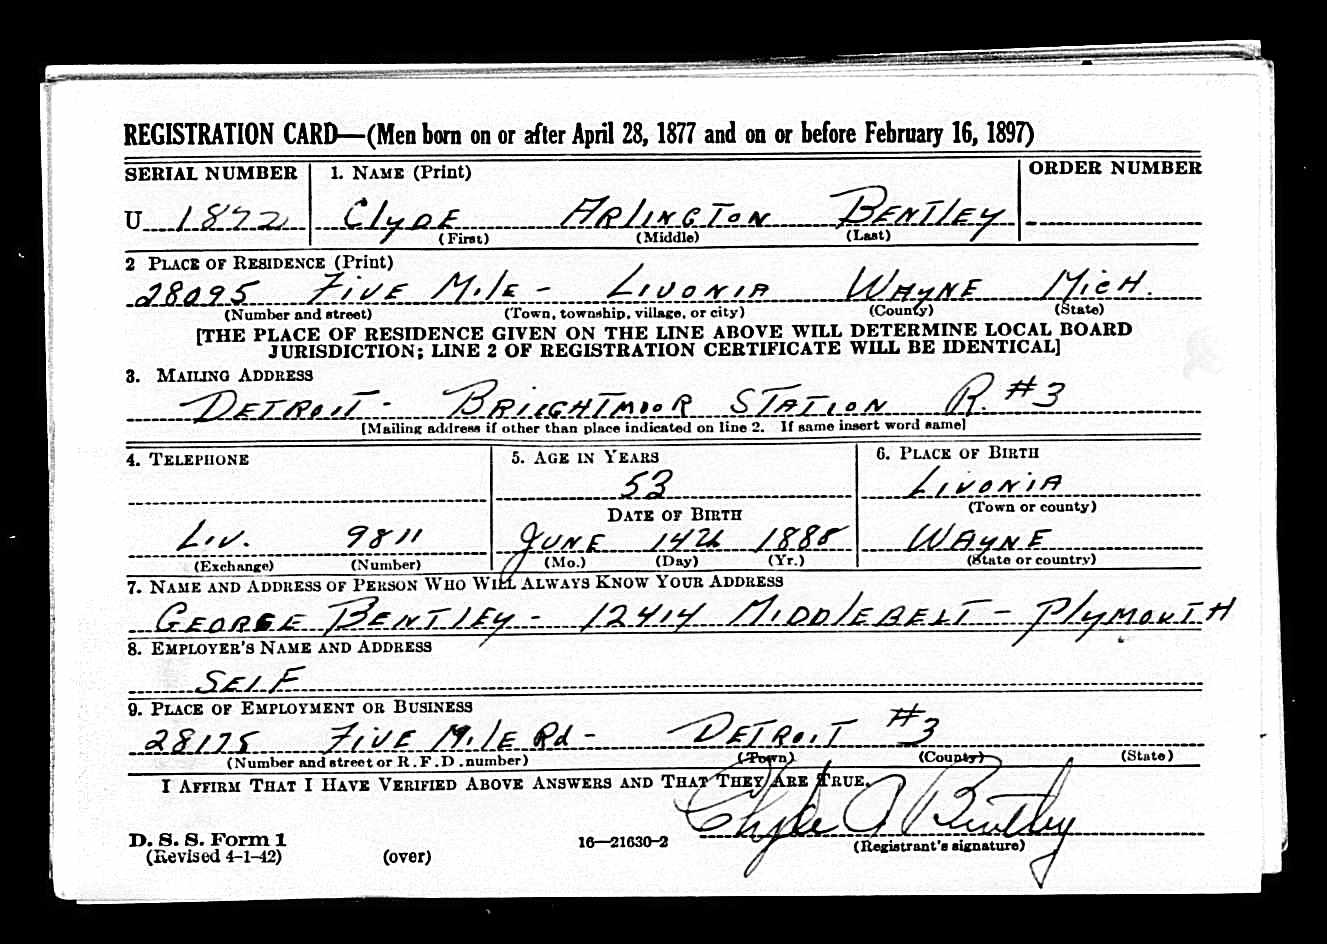 REGISTRATION CARD—(Men born on or after April 28, 1877 and on or before February 16, 1897)
SERIAL NUMBER 1. NAME (Print) ORDER NUMBER
U 1872 CLYDE ARLINGTON BENTLEY
(First) (Middle) (Last)
2 PLACE OF RESIDENCE (Print)
28095 FIVE MILE - LIVONIA WAYNE MICH.
(Number and street) (Town, township, village, or city) (County) (State)
[THE PLACE OF RESIDENCE GIVEN ON THE LINE ABOVE WILL DETERMINE LOCAL BOARD
JURISDICTION; LINE 2 OF REGISTRATION CERTIFICATE WILL BE IDENTICAL]
3. MAILING ADDRESS
DETROIT - BRIGHTMOOR STATION R. #3
[Mailing address if other than place indicated on line 2. If same insert word same]
4. TELEPHONE 5. AGE IN YEARS 6. PLACE OF BIRTH
53 LIVONIA
(Town or county)
DATE OF BIRTH
LIV. 9811 JUNE 14 1888 WAYNE
(Exchange) (Number) (Mo.) (Day) (Yr.) (State or country)
7. NAME AND ADDRESS OF PERSON WHO WILL ALWAYS KNOW YOUR ADDRESS
GEORGE BENTLEY - 12414 MIDDLEBELT - PLYMOUTH
8. EMPLOYER'S NAME AND ADDRESS
SELF
9. PLACE OF EMPLOYMENT OR BUSINESS
28175 FIVE MILE Rd - DETROIT #3
(Number and street or R.F.D. number) (Town) (County) (State)
I AFFIRM THAT I HAVE VERIFIED ABOVE ANSWERS AND THAT THEY ARE TRUE.
Clyde A Bentley
D. S. S. Form 1 16—21630-2 (Registrant's signature)
(Revised 4-1-42) (over)